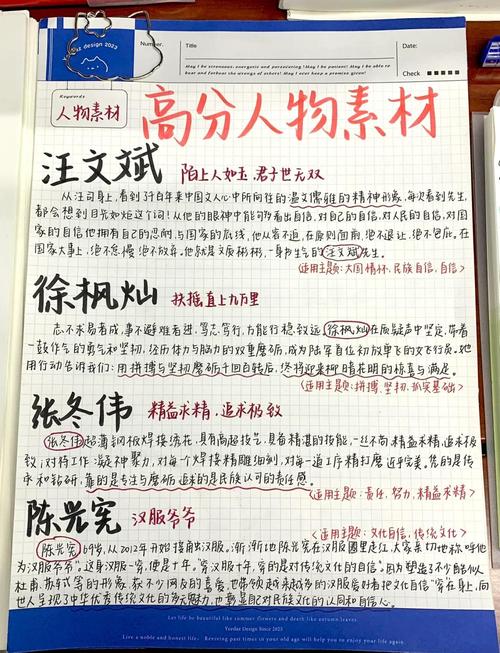 Yeedar design 2023
Number.
Title
Date:
May I be strenuous, energetic and persevering! May I be patient! May I be able to
bear and forbear the strength of others! May I never keep a promise given!
Check
Keywords
人物素材
高分人物素材
汪文斌 陌上人如玉,君子世无双
从汪司身上,看到了千百年来中国文人心中所向往的温文儒雅的精神形象,每次看到先生,
都会想到目光如炬这个词!从他的眼神中能够看出自信,对自己的自信,对人民的自信,对国
家的自信他拥有自己的思附与国家的底线,他从容不迫,在原则面前,绝不退让,绝不包庇。在
国家大事上,绝不怠慢绝不放弃,他就是文质彬彬,一身书生气的汪文斌先生。
(适用主题:大国情怀,民族自信,自信)
徐枫灿 扶摇直上九万里
志不求易者成,事不避难者进,笃志,笃行,方能行稳致远,徐枫灿在质疑声中坚定,带着
一鼓作气的勇气和坚韧,经历体力与脑力的双重磨砺,成为陆军首位初放单飞的女飞行员。她
用行动告诉我们:用拼搏与坚韧磨砺千回百转后,终将迎来柳暗花明的惊喜与满足。
(适用主题:拼搏,坚韧,扎实基础)
张冬伟 精益求精,追求极致
张冬伟超薄钢板焊接绣花,具有高超技气,具有精湛的技能,一丝不苟,精益求精,追求极
致;对待工作凝神聚力,对每个焊接精雕细刻,对每一道工序精打磨近乎完美。凭的是传
守和钻研,靠的是专注与磨砺追求的是民族认可的责任感。
(适用主题:责任,努力,精益求精)
陈光宪 汉服爷爷
(适用主题:文化自信,传统文化)
陈光宪69岁,从2012年开始接角出汉服。渐渐地陈光宪在汉服圈里走红,大家亲切地称呼他
为汉服爷爷"。这身汉服一穿,便是十年。"穿汉服十年,穿的是对传统文化的自信。因为塑造了不少酷似
杜甫,苏轼等的形象,获不少网友的喜爱,也带领越来越多的汉服爱好者把文化自信"穿在身上,向
世人呈现了中华优秀传统文化的多元魅力,也彰显自己对民族文化的认同和自信心。
Let life be beautiful like summer flowers and death like autumn leaves.
Yeedar Design Since 2023
Live a noble and honest life. Reviving past times in your old age will help you to enjoy your life again.